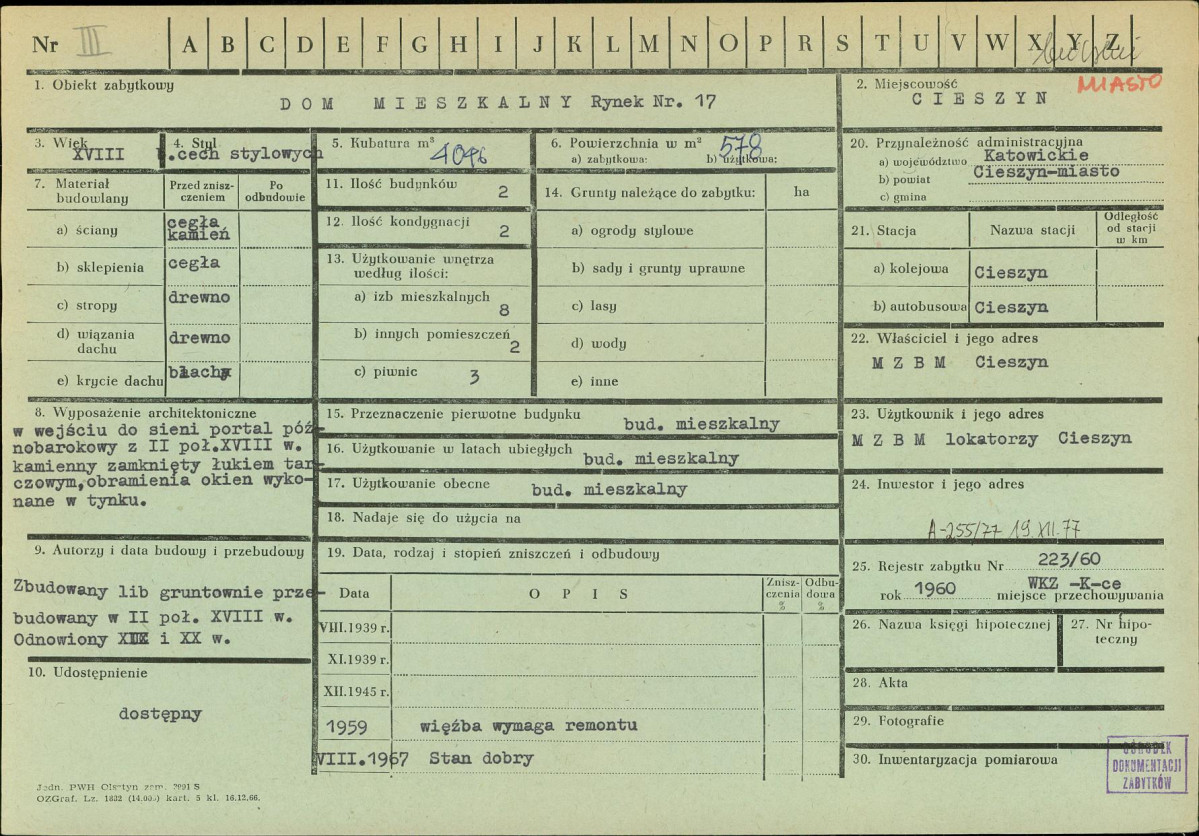 Nr III A B C D E F G H I J K L M N O P R S T U V W X Y Z
1. Obiekt zabytkowy
DOM MIESZKALNY Rynek Nr. 17
2. Miejscowość
MIASTO
CIESZYN
3. Wiek
XVIII
4. Styl
b.cech stylowych
5. Kubatura m³
4096
6. Powierzchnia w m²
578
a) zabytkowa: b) użytkowa:
7. Materiał budowlany
Przed zniszczeniem
Po odbudowie
a) ściany cegła kamień
b) sklepienia cegła
c) stropy drewno
d) wiązania dachu drewno
e) krycie dachu blacha
11. Ilość budynków 2
12. Ilość kondygnacji 2
13. Użytkowanie wnętrza według ilości:
a) izb mieszkalnych 8
b) innych pomieszczeń 2
c) piwnic 3
14. Grunty należące do zabytku: ha
a) ogrody stylowe
b) sady i grunty uprawne
c) lasy
d) wody
e) inne
8. Wyposażenie architektoniczne
w wejściu do sieni portal póź-
nobarokowy z II poł.XVIII w.
kamienny zamknięty łukiem tar-
czowym,obramienia okien wyko-
nane w tynku.
9. Autorzy i data budowy i przebudowy
Zbudowany lib gruntownie prze-
budowany w II poł. XVIII w.
Odnowiony XIX i XX w.
10. Udostępnienie
dostępny
15. Przeznaczenie pierwotne budynku
bud. mieszkalny
16. Użytkowanie w latach ubiegłych
bud. mieszkalny
17. Użytkowanie obecne bud. mieszkalny
18. Nadaje się do użycia na
19. Data, rodzaj i stopień zniszczeń i odbudowy
Data OPIS Zniszczenia % Odbudowa %
VIII.1939 r.
XI.1939 r.
XII.1945 r.
1959 więźba wymaga remontu
VIII.1967 Stan dobry
20. Przynależność administracyjna
a) województwo Katowickie
b) powiat Cieszyn-miasto
c) gmina
21. Stacja Nazwa stacji Odległość od stacji w km
a) kolejowa Cieszyn
b) autobusowa Cieszyn
22. Właściciel i jego adres
M Z B M Cieszyn
23. Użytkownik i jego adres
M Z B M lokatorzy Cieszyn
24. Inwestor i jego adres
A-255/77 19.XII.77
25. Rejestr zabytku Nr 223/60
rok 1960 miejsce przechowywania WKZ -K-ce
26. Nazwa księgi hipotecznej
27. Nr hipoteczny
28. Akta
29. Fotografie
30. Inwentaryzacja pomiarowa
OŚRODEK
DOKUMENTACJI
ZABYTKÓW
Jedn. PWH Olsztyn zam. 7991 S
OZGraf. Lz. 1832 (14.000) kart. 5 kl. 16.12.66.